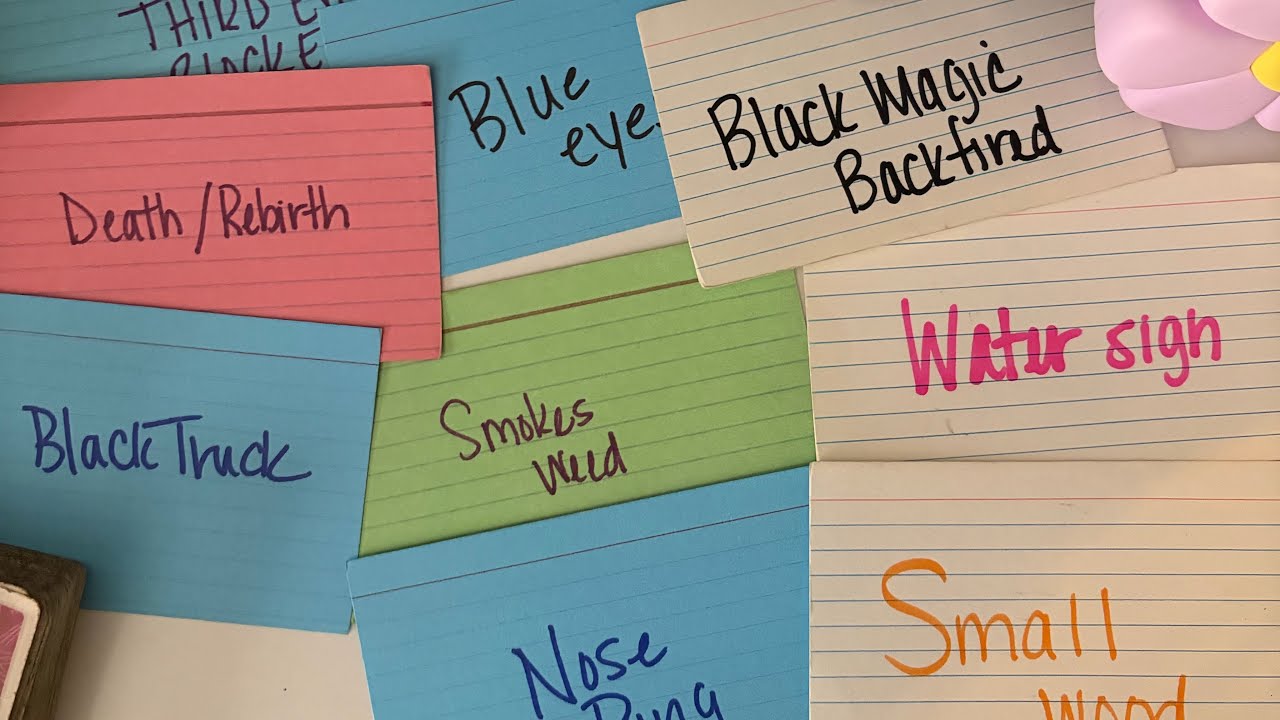 THIRD
Blue
eye
Black Magic
Backfired
Death/Rebirth
Water sign
Black Truck
Smokes
weed
Nose
Ring
Small
wood